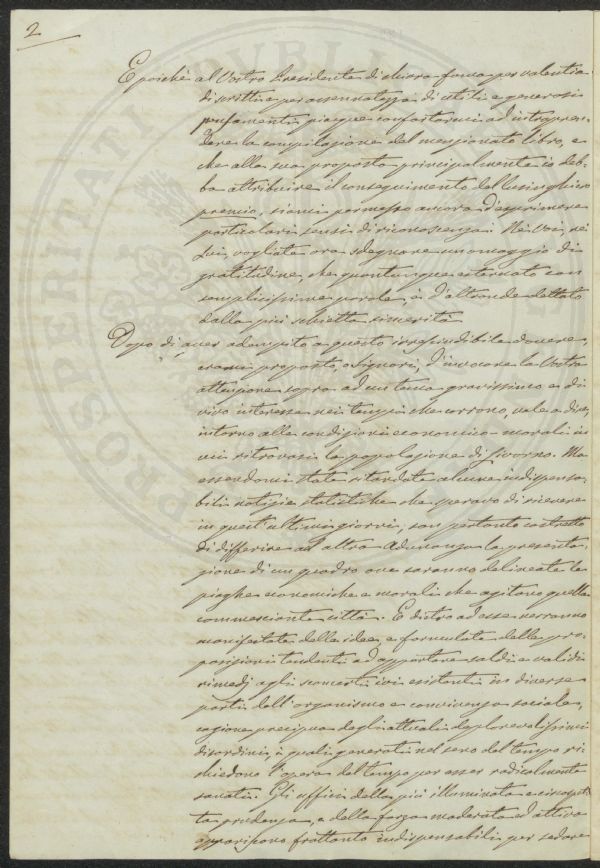 2
E poichè al Vostro Presidente di chiara fama per valentia
di scritti e per assennatezza di utili e generosi
pensamenti piacque confortarmi ad intrapren-
dere la compilazione del menzionato libro, e
che alla sua proposta principalmente io deb-
ba attribuire il conseguimento del lusinghiero
premio, siami permesso ancora d'esprimere
particolari sensi di riconoscenza. Nè Voi, nè
Lui, vogliate ora sdegnare un omaggio di
gratitudine, che quantunque esternato con
semplicissime parole, è d'altronde dettato
dalla più schietta sincerità.
Dopo di aver adempito a questo irresistibile dovere,
erami proposto, o Signori, d'invocare la Vostra
attenzione sopra ad un tema gravissimo e di
vivo interesse nei tempi che corrono, vale a dire,
intorno alle condizioni economico-morali in
cui ritrovasi la popolazione di Livorno. Ma
essendomi state ritardate alcune indispensa-
bili notizie statistiche che speravo di ricevere
in quest'ultimi giorni, son pertanto costretto
di differire ad altra Adunanza la presenta-
zione di un quadro ove saranno delineate le
piaghe economiche e morali che agitano quella
commerciante città. E dietro ad esse verranno
manifestate delle idee, e formulate delle pro-
posizioni tendenti ad apportare saldi e validi
rimedj agli sconcerti ivi esistenti in diverse
parti dell'organismo e convivenza sociale,
cagione precipua degli attuali deplorevolissimi
disordini, i quali generati nel seno del tempo ri-
chiedono l'opera del tempo per esser radicalmente
sanati. Gli uffici della più illuminata e circospet-
ta prudenza, e della forza moderata ed attiva
appariscono frattanto indispensabili per sedare
PROSPERITATI PUBLICAE